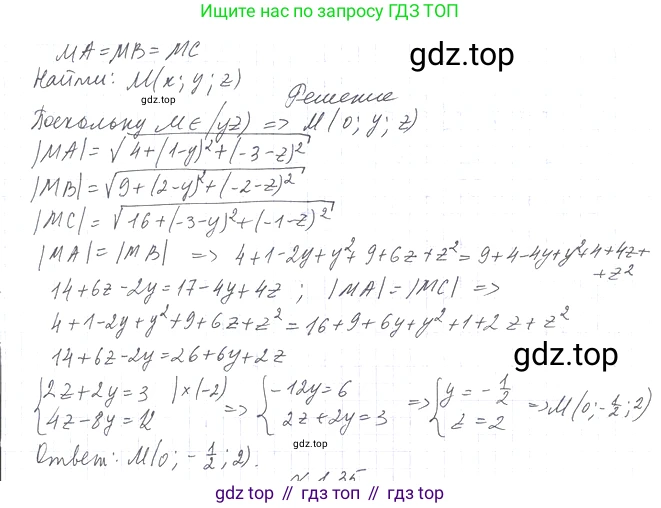 Ищите нас по запросу ГДЗ ТОП
MA = MB = MC
gdz.top
Найти: M(x; y; z)
gdz.top
Решение
Поскольку M ∈ (yz) => M(0; y; z)
|MA| = √(4+(1-y)²+(-3-z)²
|MB| = √(9+(2-y)²+(-2-z)²
|MC| = √(16+(-3-y)²+(-1-z)²
|MA| = |MB| => 4+1-2y+y²+9+6z+z² = 9+4-4y+y²+4+4z+
+z²
14+6z-2y=17-4y+4z ; |MA|=|MC| =>
4+1-2y+y²+9+6z+z² = 16+9+6y+y²+1+2z+z²
14+6z-2y=26+6y+2z
gdz.top
{2z+2y=3 |×(-2) {-12y=6 {y=-1/2
{4z-8y=12 => {2z+2y=3 => {z=2 => M(0;-1/2;2)
gdz.top
Ответ: M(0; -1/2; 2).
gdz.top // гдз.топ // gdz.top